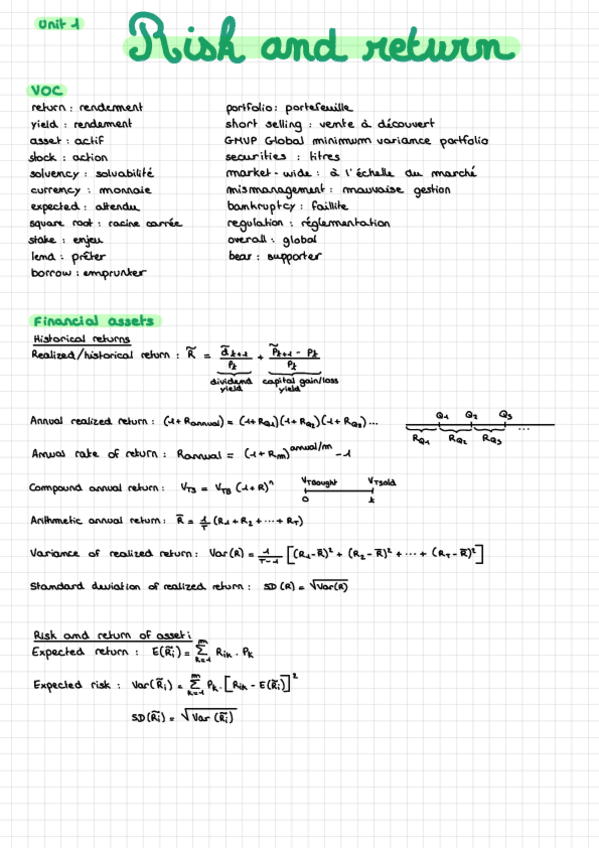 Unit 1
Risk and return
VOC
return : rendement
yield : rendement
asset : actif
stock : action
solvency : solvabilité
currency : monnaie
expected : attendu
square root : racine carrée
stake : enjeu
lend : prêter
borrow : emprunter
portfolio : portefeuille
short selling : vente à découvert
GMVP Global minimum variance portfolio
securities : titres
market-wide : à l'échelle du marché
mismanagement : mauvaise gestion
bankruptcy : faillite
regulation : réglementation
overall : global
bear : supporter
Financial assets
Historical returns
Realized/historical return : R̃ = d̃t+1/Pt + (P̃t+1 - Pt)/Pt
dividend yield capital gain/loss yield
Annual realized return : (1+Rannual) = (1+RQ1)(1+RQ2)(1+RQ3)...
Q1 Q2 Q3
RQ1 RQ2 RQ3 ...
Annual rate of return : Rannual = (1+Rm)^annual/m - 1
Compound annual return : VTS = VTB (1+R)^n
VTBought VTSold
0 t
Arithmetic annual return : R̄ = 1/T (R1+R2+...+RT)
Variance of realized return : Var(R) = 1/(T-1) [(R1-R̄)² + (R2-R̄)² + ... + (RT-R̄)²]
Standard deviation of realized return : SD(R) = √Var(R)
Risk and return of asset i
Expected return : E(R̃i) = Σ(k=1 to m) Rik . Pk
Expected risk : Var(R̃i) = Σ(k=1 to m) Pk . [Rik - E(R̃i)]²
SD(R̃i) = √Var(R̃i)